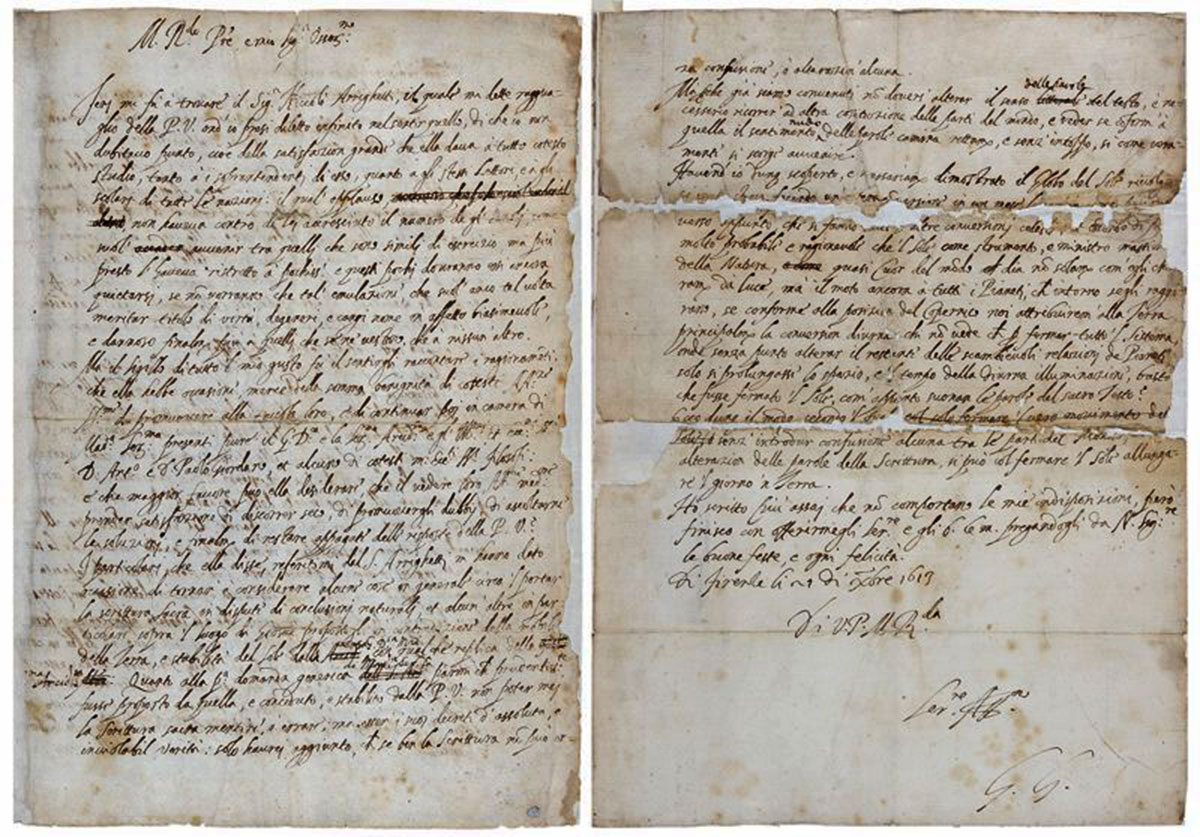 M. R.do Pre e mio Sig.r Oss.mo
Ieri mi fu à trovare il Sig. Niccolò Arrighetti, il quale mi dette raggua-
glio della P.V. ond'io presi diletto infinito nel sentir quello, di che io non
dubitavo punto, cioè della satisfazion grande che ella dava à tutto cotesto
studio, tanto à i sopraintendenti di esso, quanto à gli stessi lettori, e à gli
scolari di tutte le nazioni: il qual applauso
non haveva contro di lei accresciuto il numero de gli
avvenir tra quelli che sono simili di esercizio, ma più
presto l'haveva ristretto à pochiss.i e questi pochi dovranno essi ancora
quietarsi, se non vorranno che tal emulazione, che suol anco tal volta
meritar titolo di virtù, degeneri, e cangi nome in affetto biasimevole,
e dannoso finalm.te più à quelli che se ne vestono, che à nissun altro.
Ma il sigillo di tutto il mio gusto fu il sentirgli raccontar i ragionamenti
che ella hebbe occasione, mercè della somma benignità di coteste AA.ze
Ser.me di promuovere alla tavola loro, e di continuar poi in camera di
Mad.a Ser.ma presenti pure il G.D. e la Ser.ma Arcid.a e gl'Ill.mi et ecc.mi SS.ri
D. Ant.o e D. Paolo Giordano, et alcuni di cotesti m. ecc. SS.ri filosofi:
e che maggior favore può ella desiderare, che il vedere loro Alt.ze mede.me
prender satisfazione di discorrer seco, di promuovergli dubbii, di ascoltarne
le soluzioni, e finalm. di restar appagate delle risposte della P.V.?
I particolari, che ella disse, referitimi dal S. Arrighetti, mi hanno dato
occasione di tornar à considerare alcune cose in generale circa 'l portar
la scrittura sacra in dispute di conclusioni naturali, et alcun'altre in par-
ticolare sopra 'l luogo di Giosuè propostogli in contradizione della mobilità
della Terra, e stabilità del Sole dalla con qualche replica della
Ser.ma Arcid.sa Quanto alla p.a domanda generica di Mad.a Ser.ma parmi che prudentiss.
fusse proposto da quella, e conceduto, e stabilito dalla P.V. non poter mai
la scrittura sacra mentire, ò errare, ma esser i suoi decreti d'assoluta, e
inviolabil verità: solo haurei aggiunto, che se ben la Scrittura non può er-
na confusione, ò alterazion alcuna.
Ma se già siamo convenuti non doversi alterar il senso delle parole del testo, è ne-
cessario ricorrer ad altra costituzione delle parti del mondo, e veder se conforme à
quella il sentimento nudo delle parole camina rettam.te e senz'intoppo, si come vera-
mente si scorge avvenire.
Havend'io dunq. scoperto, e necessariam. dimostrato il Globo del Sole rivolg
in un mese
verso appunto che si fanno altre conversioni celesti, è essendo di più
molto probabile e ragionevole che 'l Sole come strumento, e ministro massimo
della Natura, quasi Cuor del mondo dia non solam. com'egli
ram. dà luce, ma il moto ancora à tutti i Pianeti, che intorno segli raggi-
rano, se conforme alla posizion del Copernico noi attribuirem alla Terra
principalm.te la conversion diurna, chi non vede che p fermar tutti 'l sistema
onde senza punto alterar il restante delle scambievoli relazioni de Pianeti
solo si prolungasse lo spazio, e 'l tempo della diurna illuminazione, bastò
che fusse fermato 'l Sole, com'appunto suonan le parole del sacro Testo?
Ecco dunq. il modo secondo 'l
senz'introdur confusione alcuna tra le parti del Mondo
alterazion delle parole della Scrittura, si può col fermare 'l Sole allunga-
re 'l giorno in Terra.
Ho scritto più assai che non comportano le mie indisposizioni, però
finisco con offerirmegli ser.re e gli b. le m. pregandogli da N. Sig.re
le buone feste, e ogni felicità.
Di Firenze li 21 di Xbre 1613
Di V.P.M.R.da
Ser.re Aff.mo
G. G.